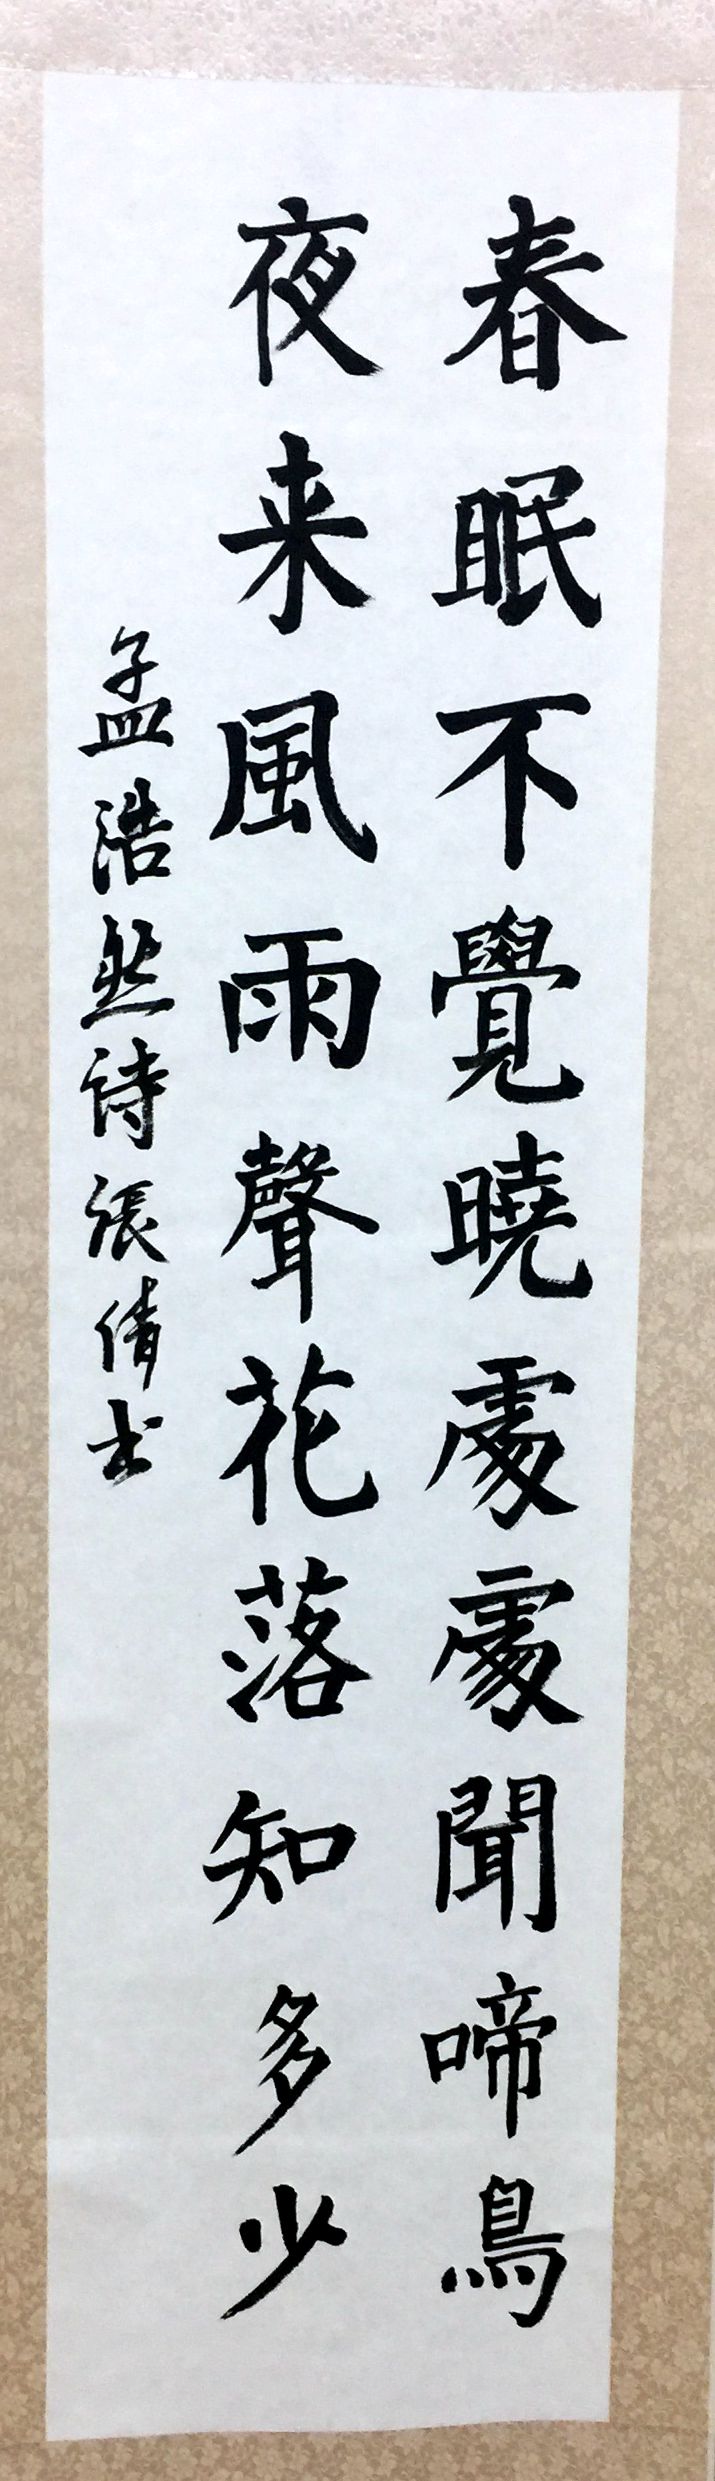 春眠不覺曉處處聞啼鳥
夜来風雨聲花落知多少
孟浩然诗張倩书